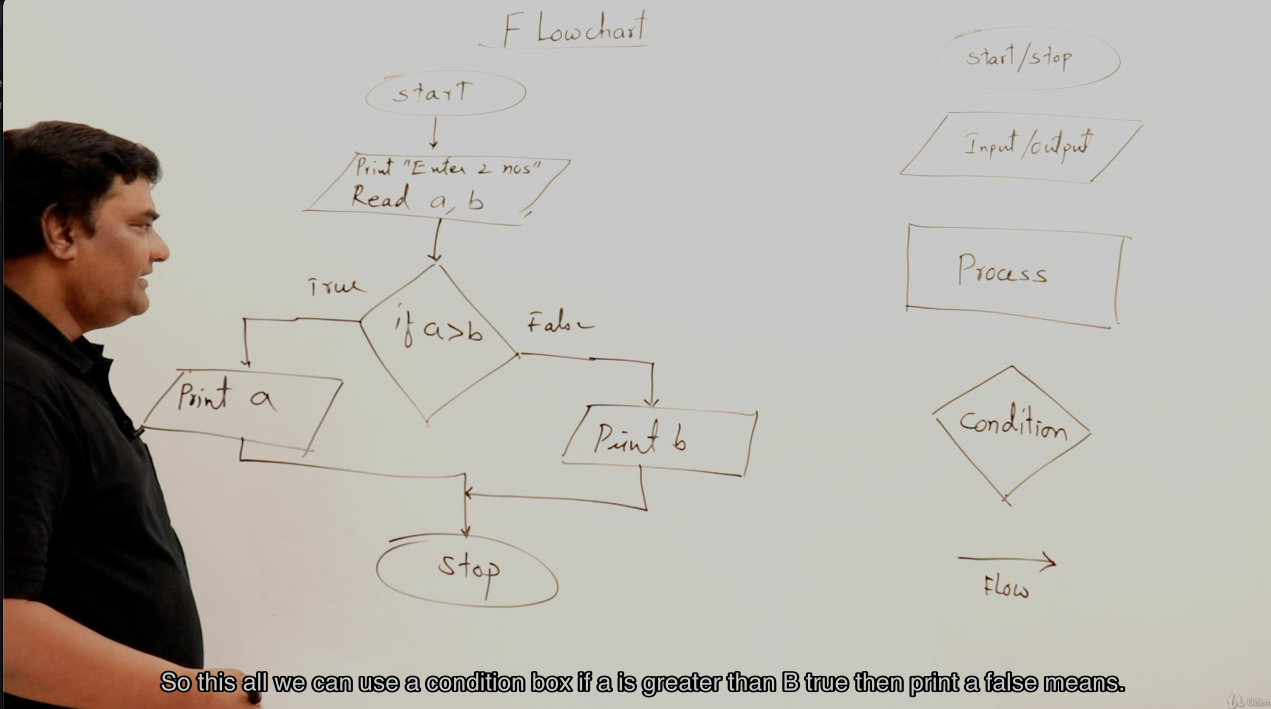 Flowchart
start
Print "Enter 2 nos"
Read a, b
True
if a>b
False
Print a
Print b
Stop
start/stop
Input/output
Process
Condition
Flow
So this all we can use a condition box if a is greater than B true then print a false means.